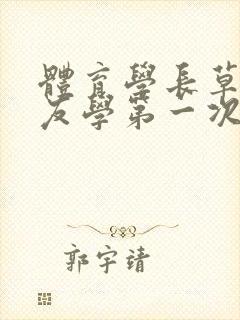 體育學長草
友學第一次
郭宇靖